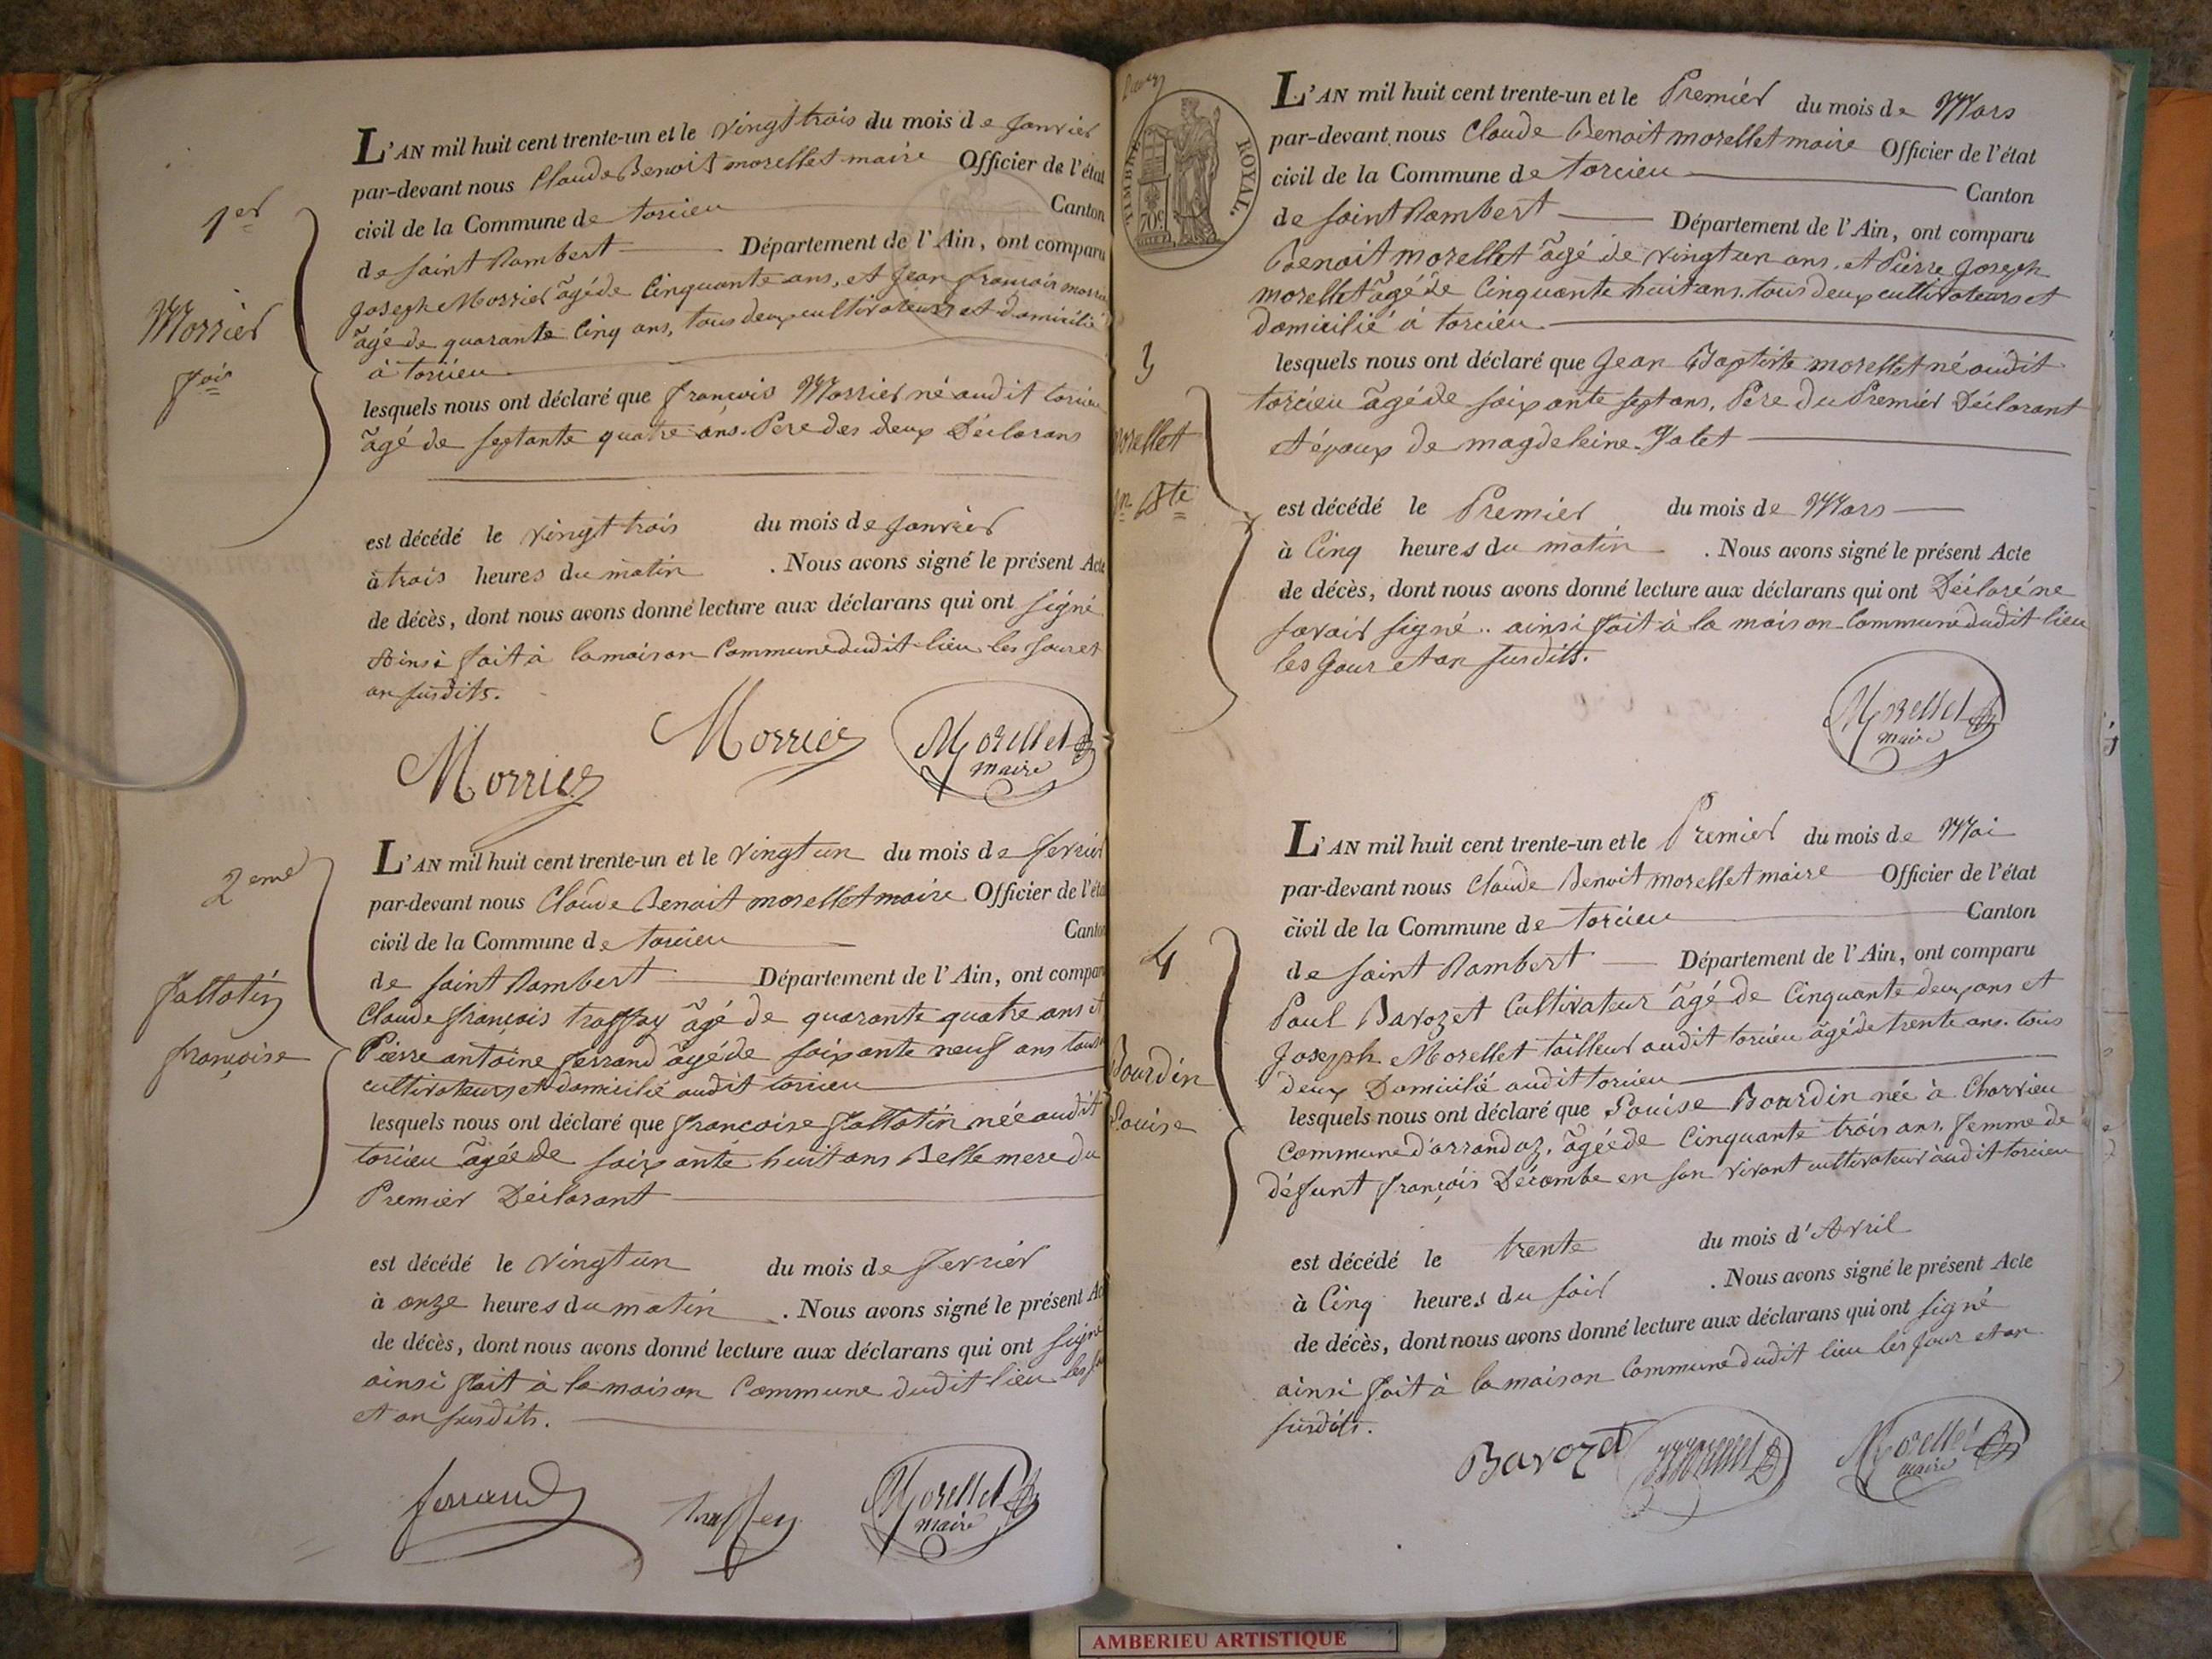 1er
Morrier
fois
L'AN mil huit cent trente-un et le vingt trois du mois de Janvier
par-devant nous Claude Benoit morellet maire Officier de l'état
civil de la Commune de torcieu Canton
de Saint Rambert Département de l'Ain, ont comparu
Joseph Morrier âgé de Cinquante ans, et Jean françois
âgé de quarante Cinq ans, tous deux cultivateurs et domicilié
à torcieu
lesquels nous ont déclaré que françois Morrier né audit torcieu
âgé de septante quatre ans. Pere des deux Déclarans
est décédé le vingt trois du mois de Janvier
à trois heures du matin . Nous avons signé le présent Acte
de décès, dont nous avons donné lecture aux déclarans qui ont signé
Ainsi fait à la maison Commune dudit lieu les Jour et
an susdits.
Morrier Morrier Morellet
maire
2eme
fallatin
françoise
L'AN mil huit cent trente-un et le vingt un du mois de fevrier
par-devant nous Claude Benoit morellet maire Officier de l'état
civil de la Commune de torcieu Canton
de Saint Rambert Département de l'Ain, ont comparu
Claude françois traffay âgé de quarante quatre ans et
Pierre antoine ferrand âgé de soixante neuf ans tous
cultivateurs et domicilié audit torcieu
lesquels nous ont déclaré que françoise fallatin née audit
torcieu âgée de soixante huit ans Belle mere du
Premier Déclarant
est décédé le vingt un du mois de fevrier
à onze heures du matin . Nous avons signé le présent Acte
de décès, dont nous avons donné lecture aux déclarans qui ont signé
ainsi fait à la maison Commune dudit lieu les
et an susdits.
ferrand traffey Morellet
maire
TIMBRE ROYAL.
70c
L'AN mil huit cent trente-un et le Premier du mois de Mars
par-devant nous Claude Benoit morellet maire Officier de l'état
civil de la Commune de torcieu Canton
de Saint Rambert Département de l'Ain, ont comparu
Benoit morellet âgé de vingt un ans, et Pierre Joseph
morellet âgé de Cinquante huit ans, tous deux cultivateurs et
domicilié à torcieu
3
morellet
jn Bte
lesquels nous ont déclaré que Jean Baptiste morellet né audit
torcieu âgé de soixante sept ans, Pere du Premier Déclarant
et époux de magdeleine
est décédé le Premier du mois de Mars
à Cinq heures du matin . Nous avons signé le présent Acte
de décès, dont nous avons donné lecture aux déclarans qui ont Déclaré ne
savoir signé. ainsi fait à la maison Commune dudit lieu
les Jour et an susdits.
Morellet
maire
4
Bourdin
Louise
L'AN mil huit cent trente-un et le Premier du mois de Mai
par-devant nous Claude Benoit morellet maire Officier de l'état
civil de la Commune de torcieu Canton
de Saint Rambert Département de l'Ain, ont comparu
Paul Bavozet Cultivateur âgé de Cinquante deux ans et
Joseph Morellet tailleur audit torcieu âgé de trente ans. tous
deux Domicilié audit torcieu
lesquels nous ont déclaré que Louise Bourdin née à Charvieu
Commune d'arrandaz, âgée de Cinquante trois ans, femme de
défunt françois Décombe en son vivant cultivateur audit torcieu
est décédé le trente du mois d'Avril
à Cinq heures du soir . Nous avons signé le présent Acte
de décès, dont nous avons donné lecture aux déclarans qui ont signé
ainsi fait à la maison Commune dudit lieu les Jour et an
susdits.
Bavozet Morellet Morellet
maire
AMBERIEU ARTISTIQUE